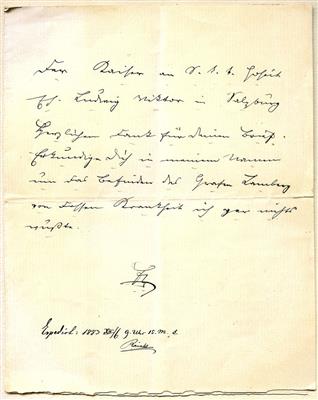 Der Kaiser an S. k. k. Hoheit
Eh. Ludwig Viktor in Salzburg
Herzlichen Dank für Deinen Brief.
Erkundige Dich in meinem Namen
um das Befinden des Grafen Lamberg
von dessen Krankheit ich gar nichts
wußte.
Expedirt: 1893 9 Uhr 15 M.